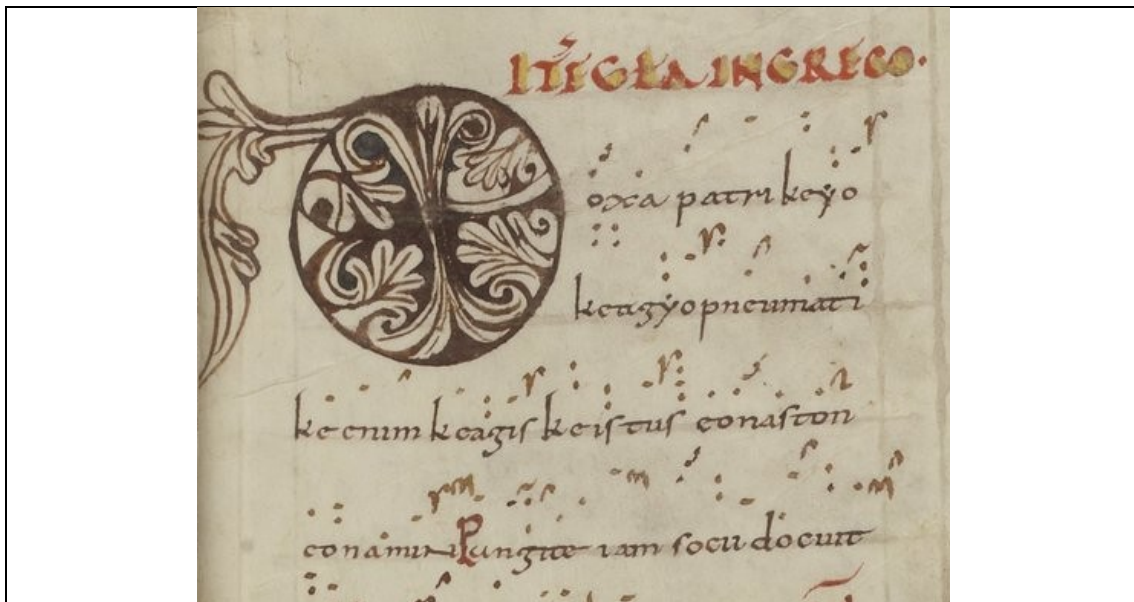 ITĒ GLA IN GRECO·
Doxa patri keyo
keagyopneumati
ke enim keagis keistus eonaston
eonamin Pangite iam socii docuit